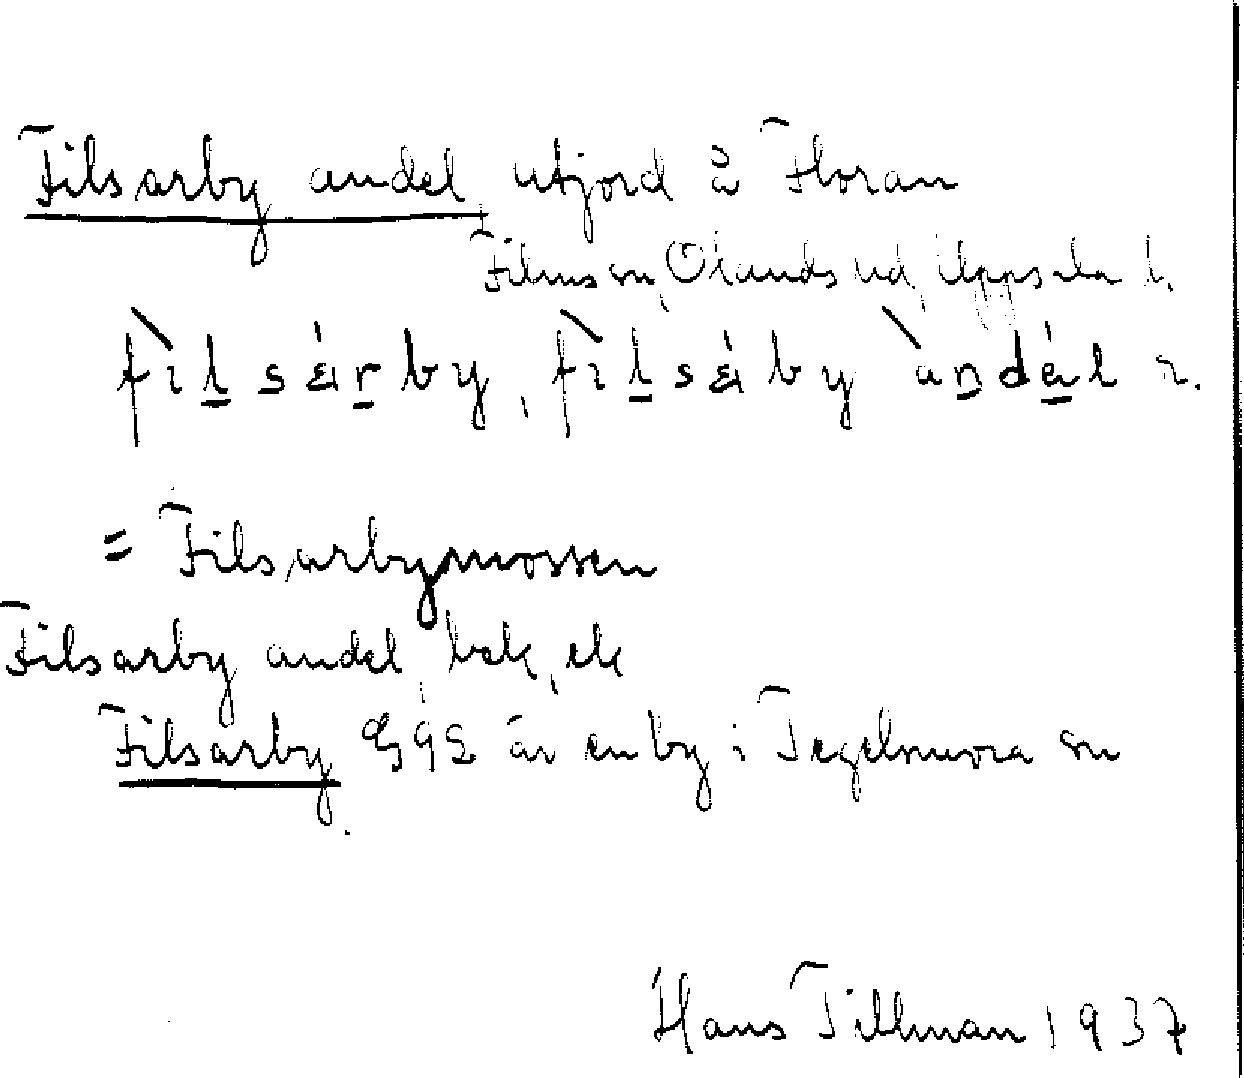 Filsarby andel, utjord å Floran
Films sn, Olands hd, Uppsala l.
fìlsárby, fìlsáby àndál 2.
= Filsarbymossen
Filsarby andel, bek, ek
Filsarby är en by i Tegelsmora sn
Hans Tillman 1937